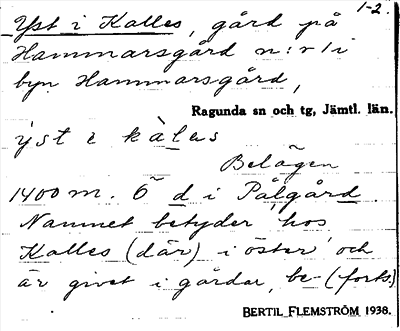 1-2.
Yst i Kalles, gård på
Hammarsgård n:r 1 i
byn Hammarsgård,
Ragunda sn och tg, Jämtl. län.
ýst i kàlas
Belägen
1400 m. Ö d i Pålgård.
Namnet betyder 'hos
Kalles (där) i öster' och
är givet i gårdar, be- (forts.)
BERTIL FLEMSTRÖM 1938.